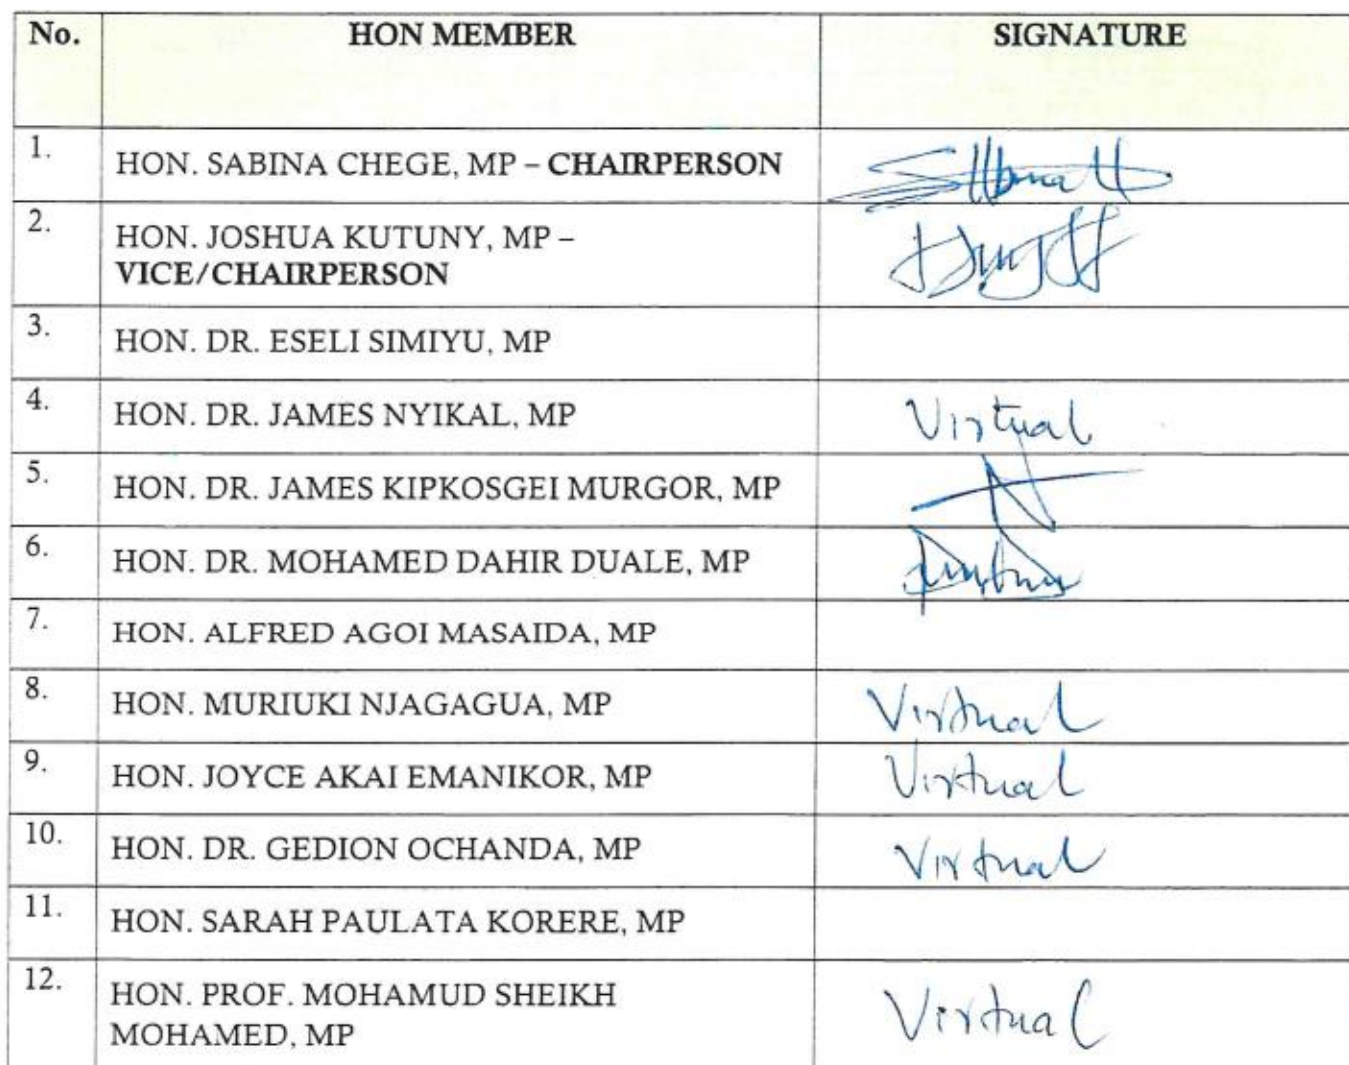 No. HON MEMBER SIGNATURE
1. HON. SABINA CHEGE, MP – CHAIRPERSON
2. HON. JOSHUA KUTUNY, MP –
VICE/CHAIRPERSON
3. HON. DR. ESELI SIMIYU, MP
4. HON. DR. JAMES NYIKAL, MP Virtual
5. HON. DR. JAMES KIPKOSGEI MURGOR, MP
6. HON. DR. MOHAMED DAHIR DUALE, MP
7. HON. ALFRED AGOI MASAIDA, MP
8. HON. MURIUKI NJAGAGUA, MP Virtual
9. HON. JOYCE AKAI EMANIKOR, MP Virtual
10. HON. DR. GEDION OCHANDA, MP Virtual
11. HON. SARAH PAULATA KORERE, MP
12. HON. PROF. MOHAMUD SHEIKH
MOHAMED, MP Virtual